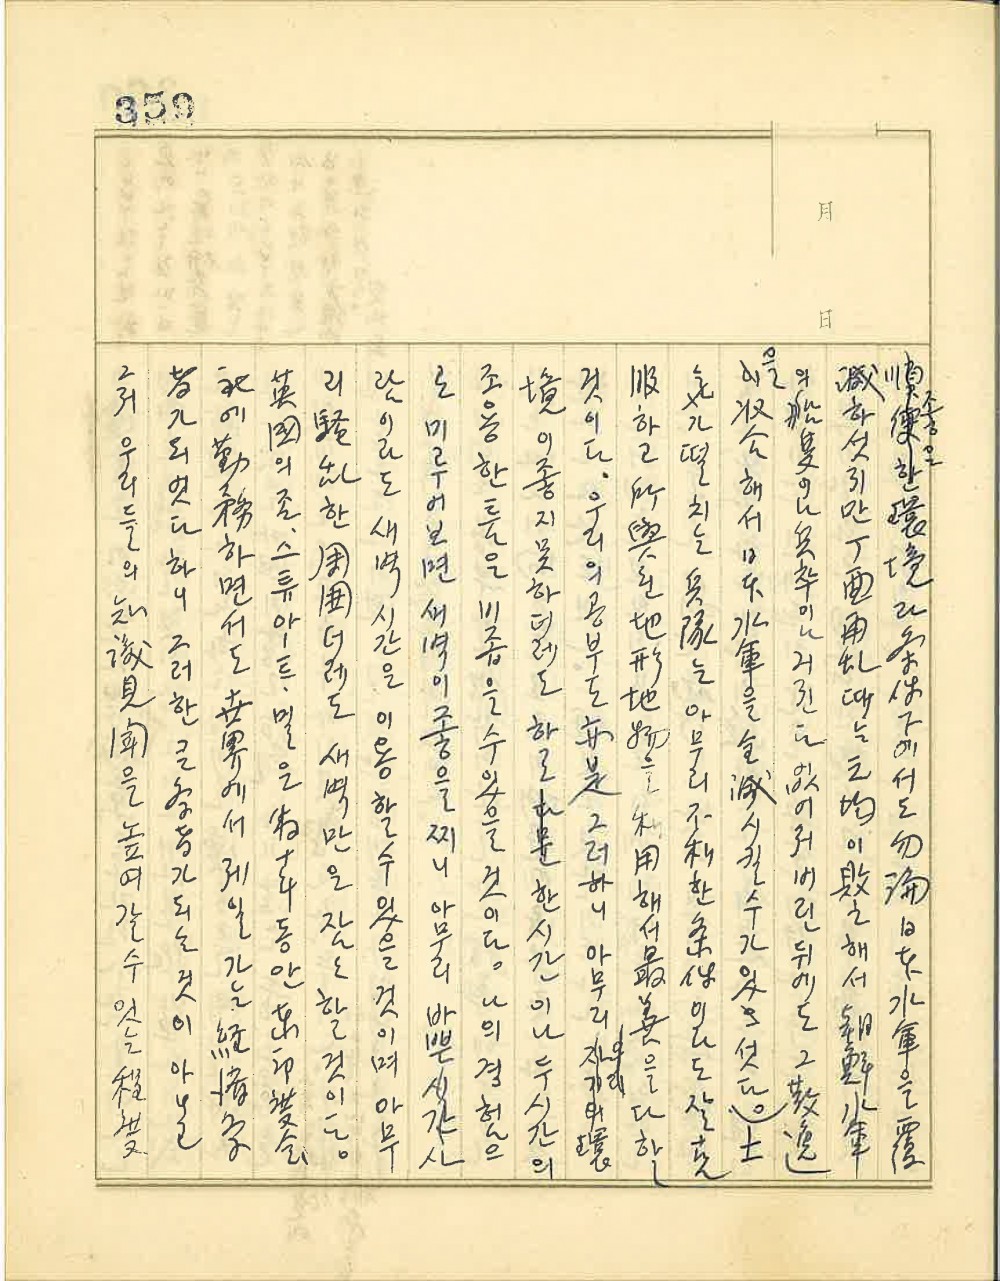 359
月
日
順便한 環境과 좋은 条件下에서도 勿論 日本水軍을 覆
滅하섯지만 丁酉再乱때는 元均이 敗전해서 朝鮮水軍
의 船隻이나 兵卒이나 거진 다 없어져버린 뒤에도 그 散逸
을 収合해서 日本水軍을 全滅시킬 수가 있으셧다。士
気가 떨치는 兵隊는 아무리 不利한 条件이라도 잘 克
服하고 所與된 地形地物을 利用해서 最善을 다 할
것이다. 우리의 공부도 亦是 그러하니 아무리 우리 環
境이 좋지 못하더레도 하로 한시간이나 두시간의
조용한 틈은 비줍을 수 있을 것이다。 나의 경험으
로 미루어보면 새벽이 좋을찌니 아무리 바쁜 사
람이라도 새벽시간은 이용할 수 있을 것이며 아무
리 騷乱한 周囲더레도 새벽만은 잠잠할 것이다。
英國의 죤、스튜아ー트、밀은 数十年동안 東印度会
社에 勤務하면서도 世界에서 제일 가는 経済学
者가 되엿다 하니 그러한 큰 学者가 되는 것이 아닐
그저 우리들의 知識見聞을 높여갈 수 있는 程度